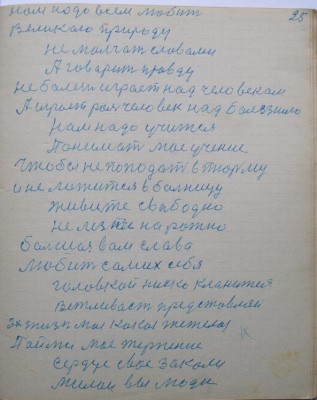 нам надо всем любит 25
Великою природу
не молчат словами
А говарит правду
не болет играет над человекам
А играт рол человек над болезнию
Нам надо учитця
Панимат мае учение
Чтобы не поподат в тюрму
и не ложитця в болницу
живите свободно
не лезте на рожно
болшая вам слава
Любит самих себя
головкой ниско кланятця
Вежливаст представлят
за жизн мы какая жетела
Пайми мае терпение
Сердце свае закали
Милаи вы люди